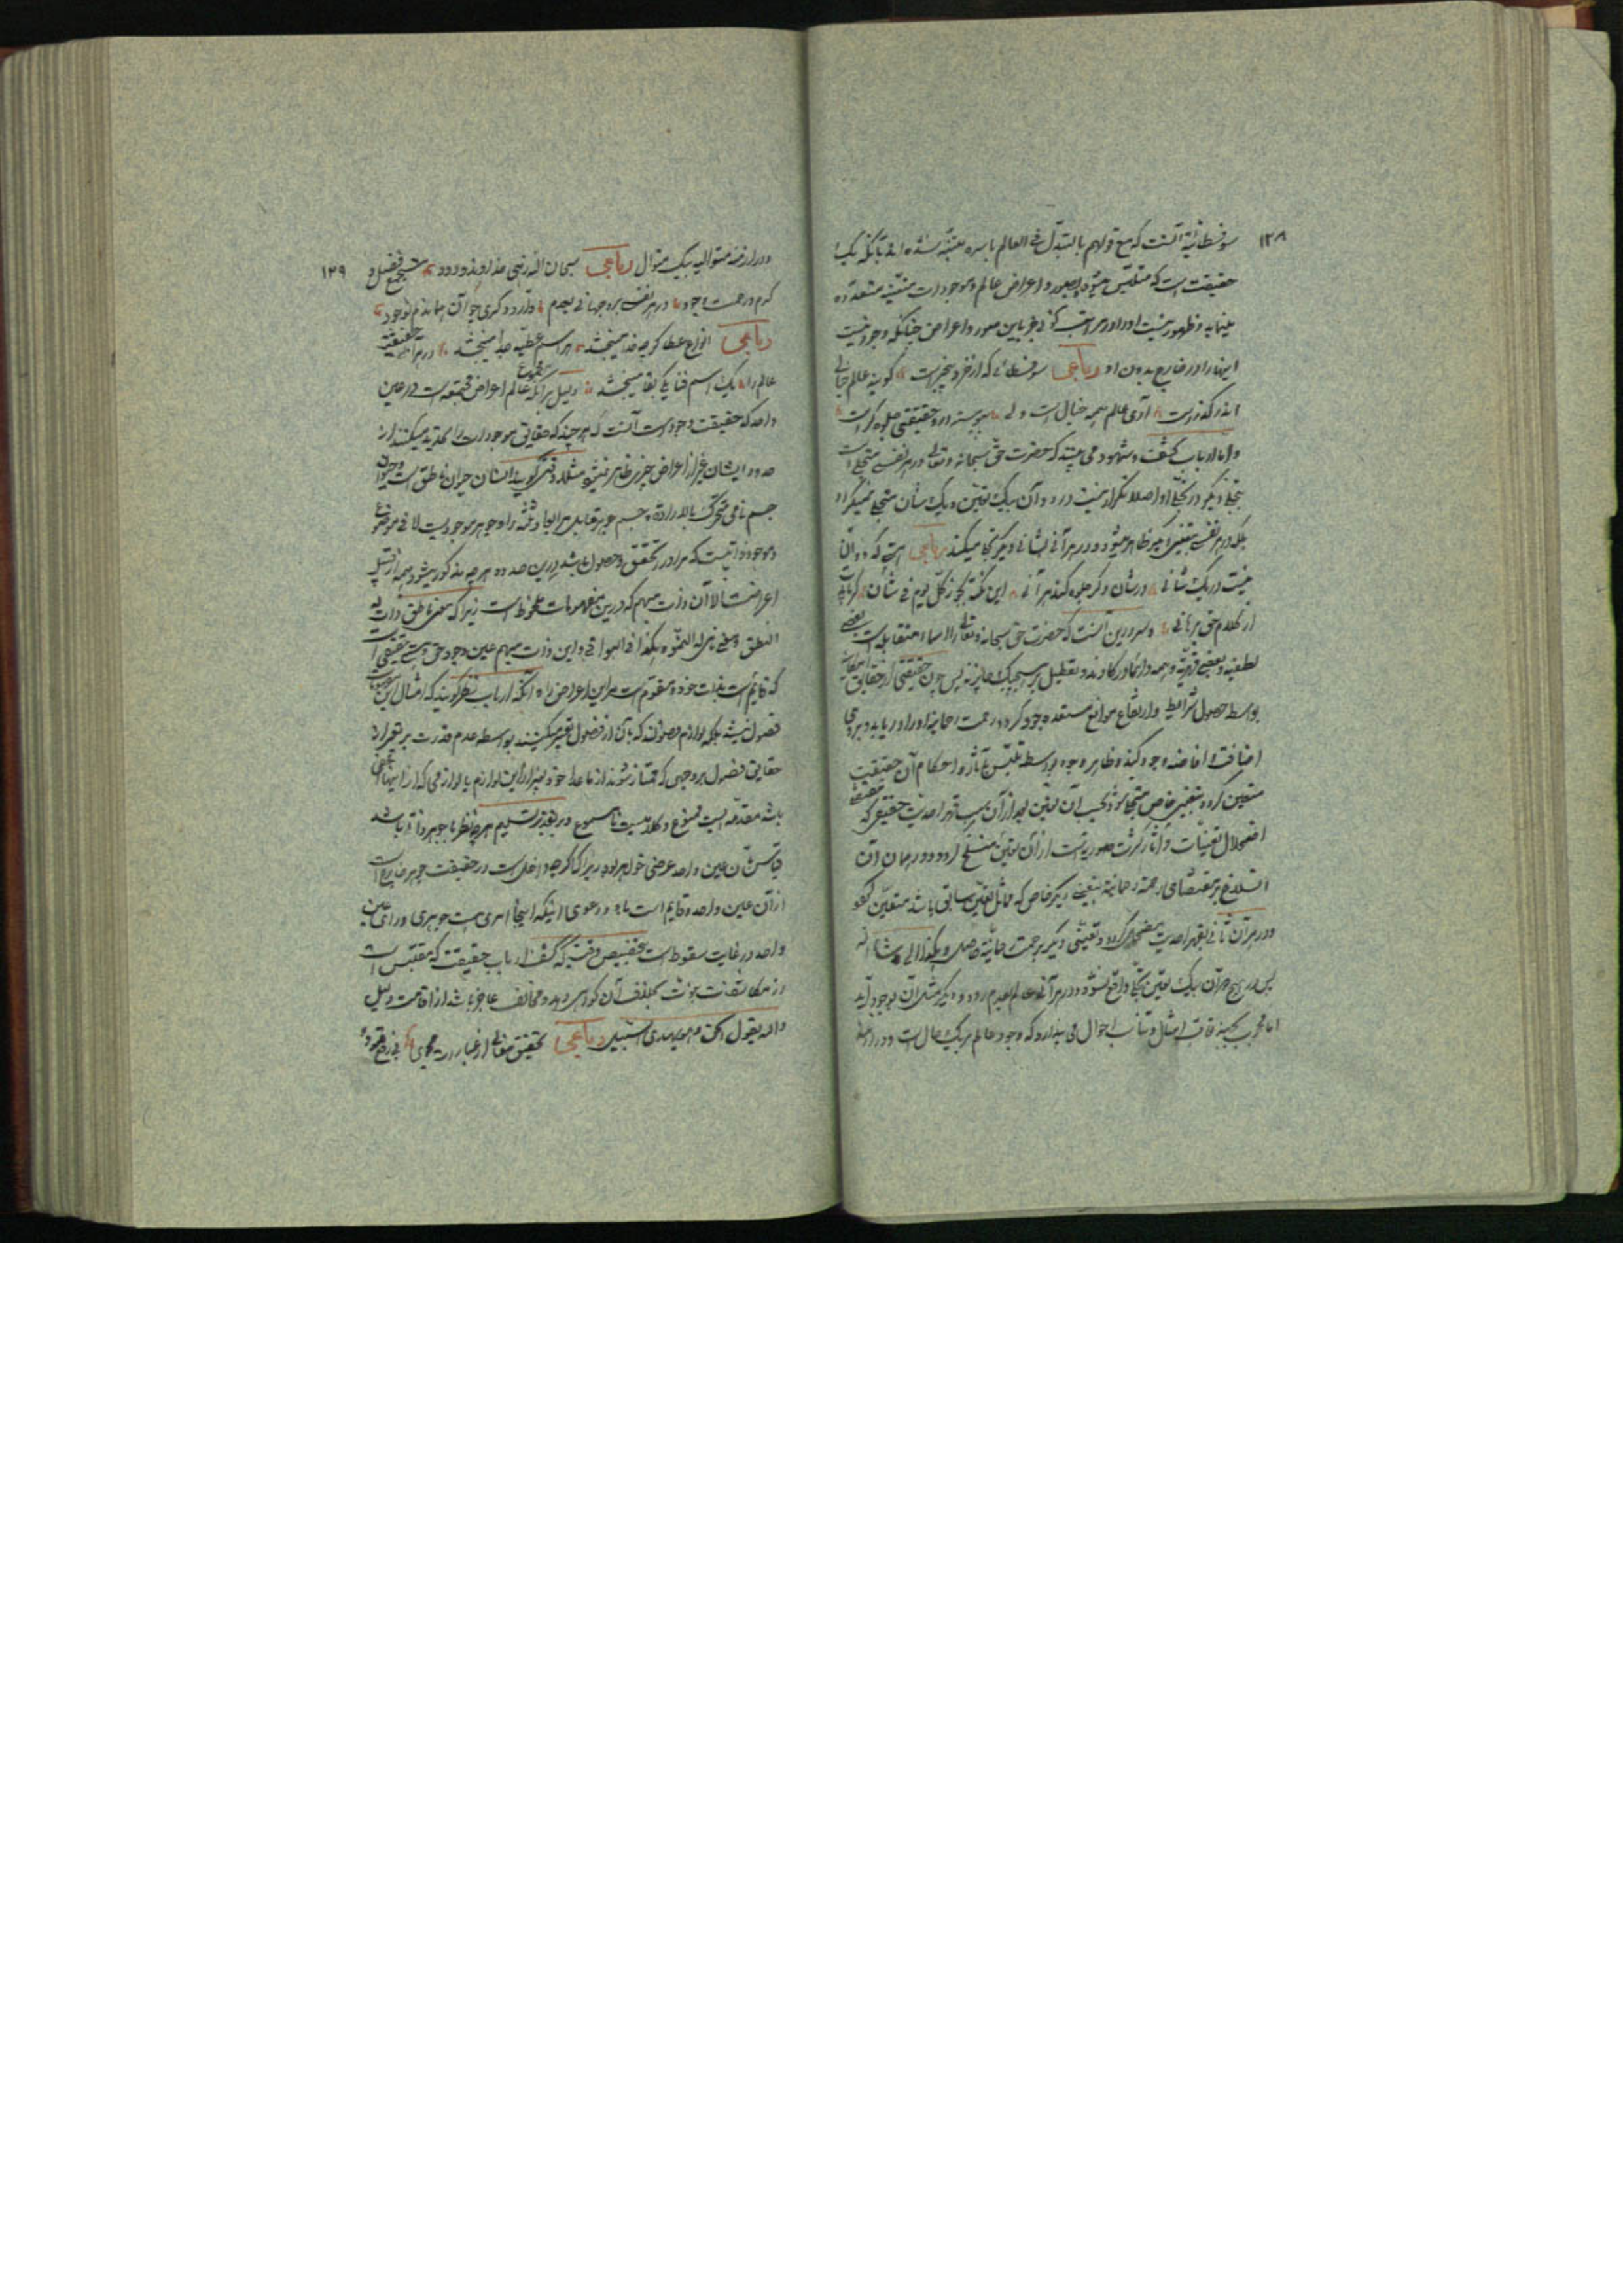 ۱۲۸
سوفسطائیه آنست که مع قولهم بالتبدل فی العالم باسره متنبه نشده‌اند بآنکه یک
حقیقت است که متلبس میشود بصور و اعراض عالم و موجودات متعینه متعدده
مینماید و ظهور نیست او را در مراتب کونی جز باین صور و اعراض چنانکه وجود نیست
اینها را در خارج بدون او رباعی سوفسطائی که از خرد بیخبر است گوید عالم خیالی
اندر گذرست آری عالم همه خیال است ولی پیوسته در او حقیقتی جلوه گر است
و اما ارباب کشف و شهود می بینند که حضرت حق سبحانه و تعالی در هر نفسی متجلی است
بتجلی دیگر و در تجلی او اصلا تکرار نیست در دو آن بیک تعین و یک شأن متجلی نمیگردد
بلکه در هر نفسی بتعینی دیگر ظاهر میشود و در هر آنی بشانی دیگر تجلی میکند رباعی هستی که دو آن
نیست در یک شانی در شان دگر جلوه کند هر آنی این نکته بجو ز کل یوم فی شأن گر بایدت
از کلام حق برهانی و سر درین آنست که حضرت حق سبحانه و تعالی را اسماء متقابله است بعضی
لطفیه و بعضی قهریه و همه دائما در کارند و تعطیل بر هیچیک جایز نه پس چون حقیقتی از حقایق امکانیه
بواسطه حصول شرایط و ارتفاع موانع مستعد وجود گردد رحمت رحمانیه او را دریابد و بر وی
اضافت و افاضه وجود کند و ظاهر وجود بواسطه تلبس بآثار و احکام آن حقیقت
متعین گردد بتعینی خاص متجلی شود بحسب آن تعین بعد از آن بسبب قهر احدیت حقیقی که مقتضی
اضمحلال تعینات و آثار کثرت صوریه است از آن تعین منسلخ گردد و در همان آن
انسلاخ بر مقتضای رحمت رحمانیه بتعینی دیگر خاص که مماثل تعین سابق باشد متعین گردد
و در آن ثانی بقهر احدیت مضمحل گردد و تعینی دیگر برحمت رحمانیه حاصل و هکذا الی ما شاء الله
پس در هیچ دو آن بیک تعین تجلی واقع نشود و در هر آنی عالمی بعدم رود و دیگری مثل آن بوجود آید
اما محجوب بجهت تعاقب امثال و تناسب احوال می پندارد که وجود عالم بر یک حال است و در ازمنه
۱۲۹
و در ازمنه متوالیه بیک منوال رباعی سبحان الله زهی خداوند ودود مستجمع فضل و
کرم و رحمت و جود در هر نفسی برد جهانی بعدم و آرد دگری چو آن هماندم بوجود
رباعی انواع عطا گرچه خدا میبخشد هر اسم عطیه جدا میبخشد در هر آنی حقیقت
عالم را یک اسم فنا یکی بقا میبخشد دلیل بر آنکه مجموع عالم اعراض مجتمعه است در عین
واحد که حقیقت وجود است آنست که هر چند که حقایق موجودات را تحدید میکنند در
حدود ایشان غیر از اعراض چیزی ظاهر نمیشود مثلا وقتی که گویند انسان حیوان ناطق است و حیوان
جسم نامی متحرک بالاراده و جسم جوهر قابل مر ابعاد ثلثه را و جوهر موجودیست لا فی موضوع
و موجود ذاتیست که مر او را تحقق و حصول باشد درین حدود هر چه مذکور میشود همه از قبیل
اعراضست الا آن ذات مبهم که درین مفهومات ملحوظ است زیرا که معنی ناطق ذات له
النطق و معنی نامی ذات له النمو و هکذا فی البواقی و این ذات مبهم عین وجود حق و هستی حقیقی است
که قایم است بذات خود و مقوم است مر این اعراض را و آنکه ارباب نظر گویند که امثال این
فصول نیستند بلکه لوازم فصولند که بآن از فصول تعبیر میکنند بواسطه عدم قدرت بر تعبیر از
حقایق فصول بر وجهی که ممتاز شوند از ماعدا خود بغیر از این لوازم یا لوازمی که از اینها اخفی
باشد مقدمه ایست ممنوع و کلامیست نامسموع و بر تقدیر تسلیم هر چه نظر با جوهر ذاتی باشد
قیاس بآن عین واحد عرضی خواهد بود زیرا که اگرچه داخل است در حقیقت جوهر خارج است
از آن عین واحد و قایم است باو و دعوی اینکه اینجا امری هست جوهری ورای عین
واحد در غایت سقوط است بتخصیص وقتی که کشف ارباب حقیقت که مقتبس است
از مشکوة نبوت بخلاف آن گواهی دهد و مخالف عاجز باشد از اقامت دلیل
والله یقول الحق و هو یهدی السبیل رباعی تحقیق معانی از عبارات مجوی بی رفع قیود